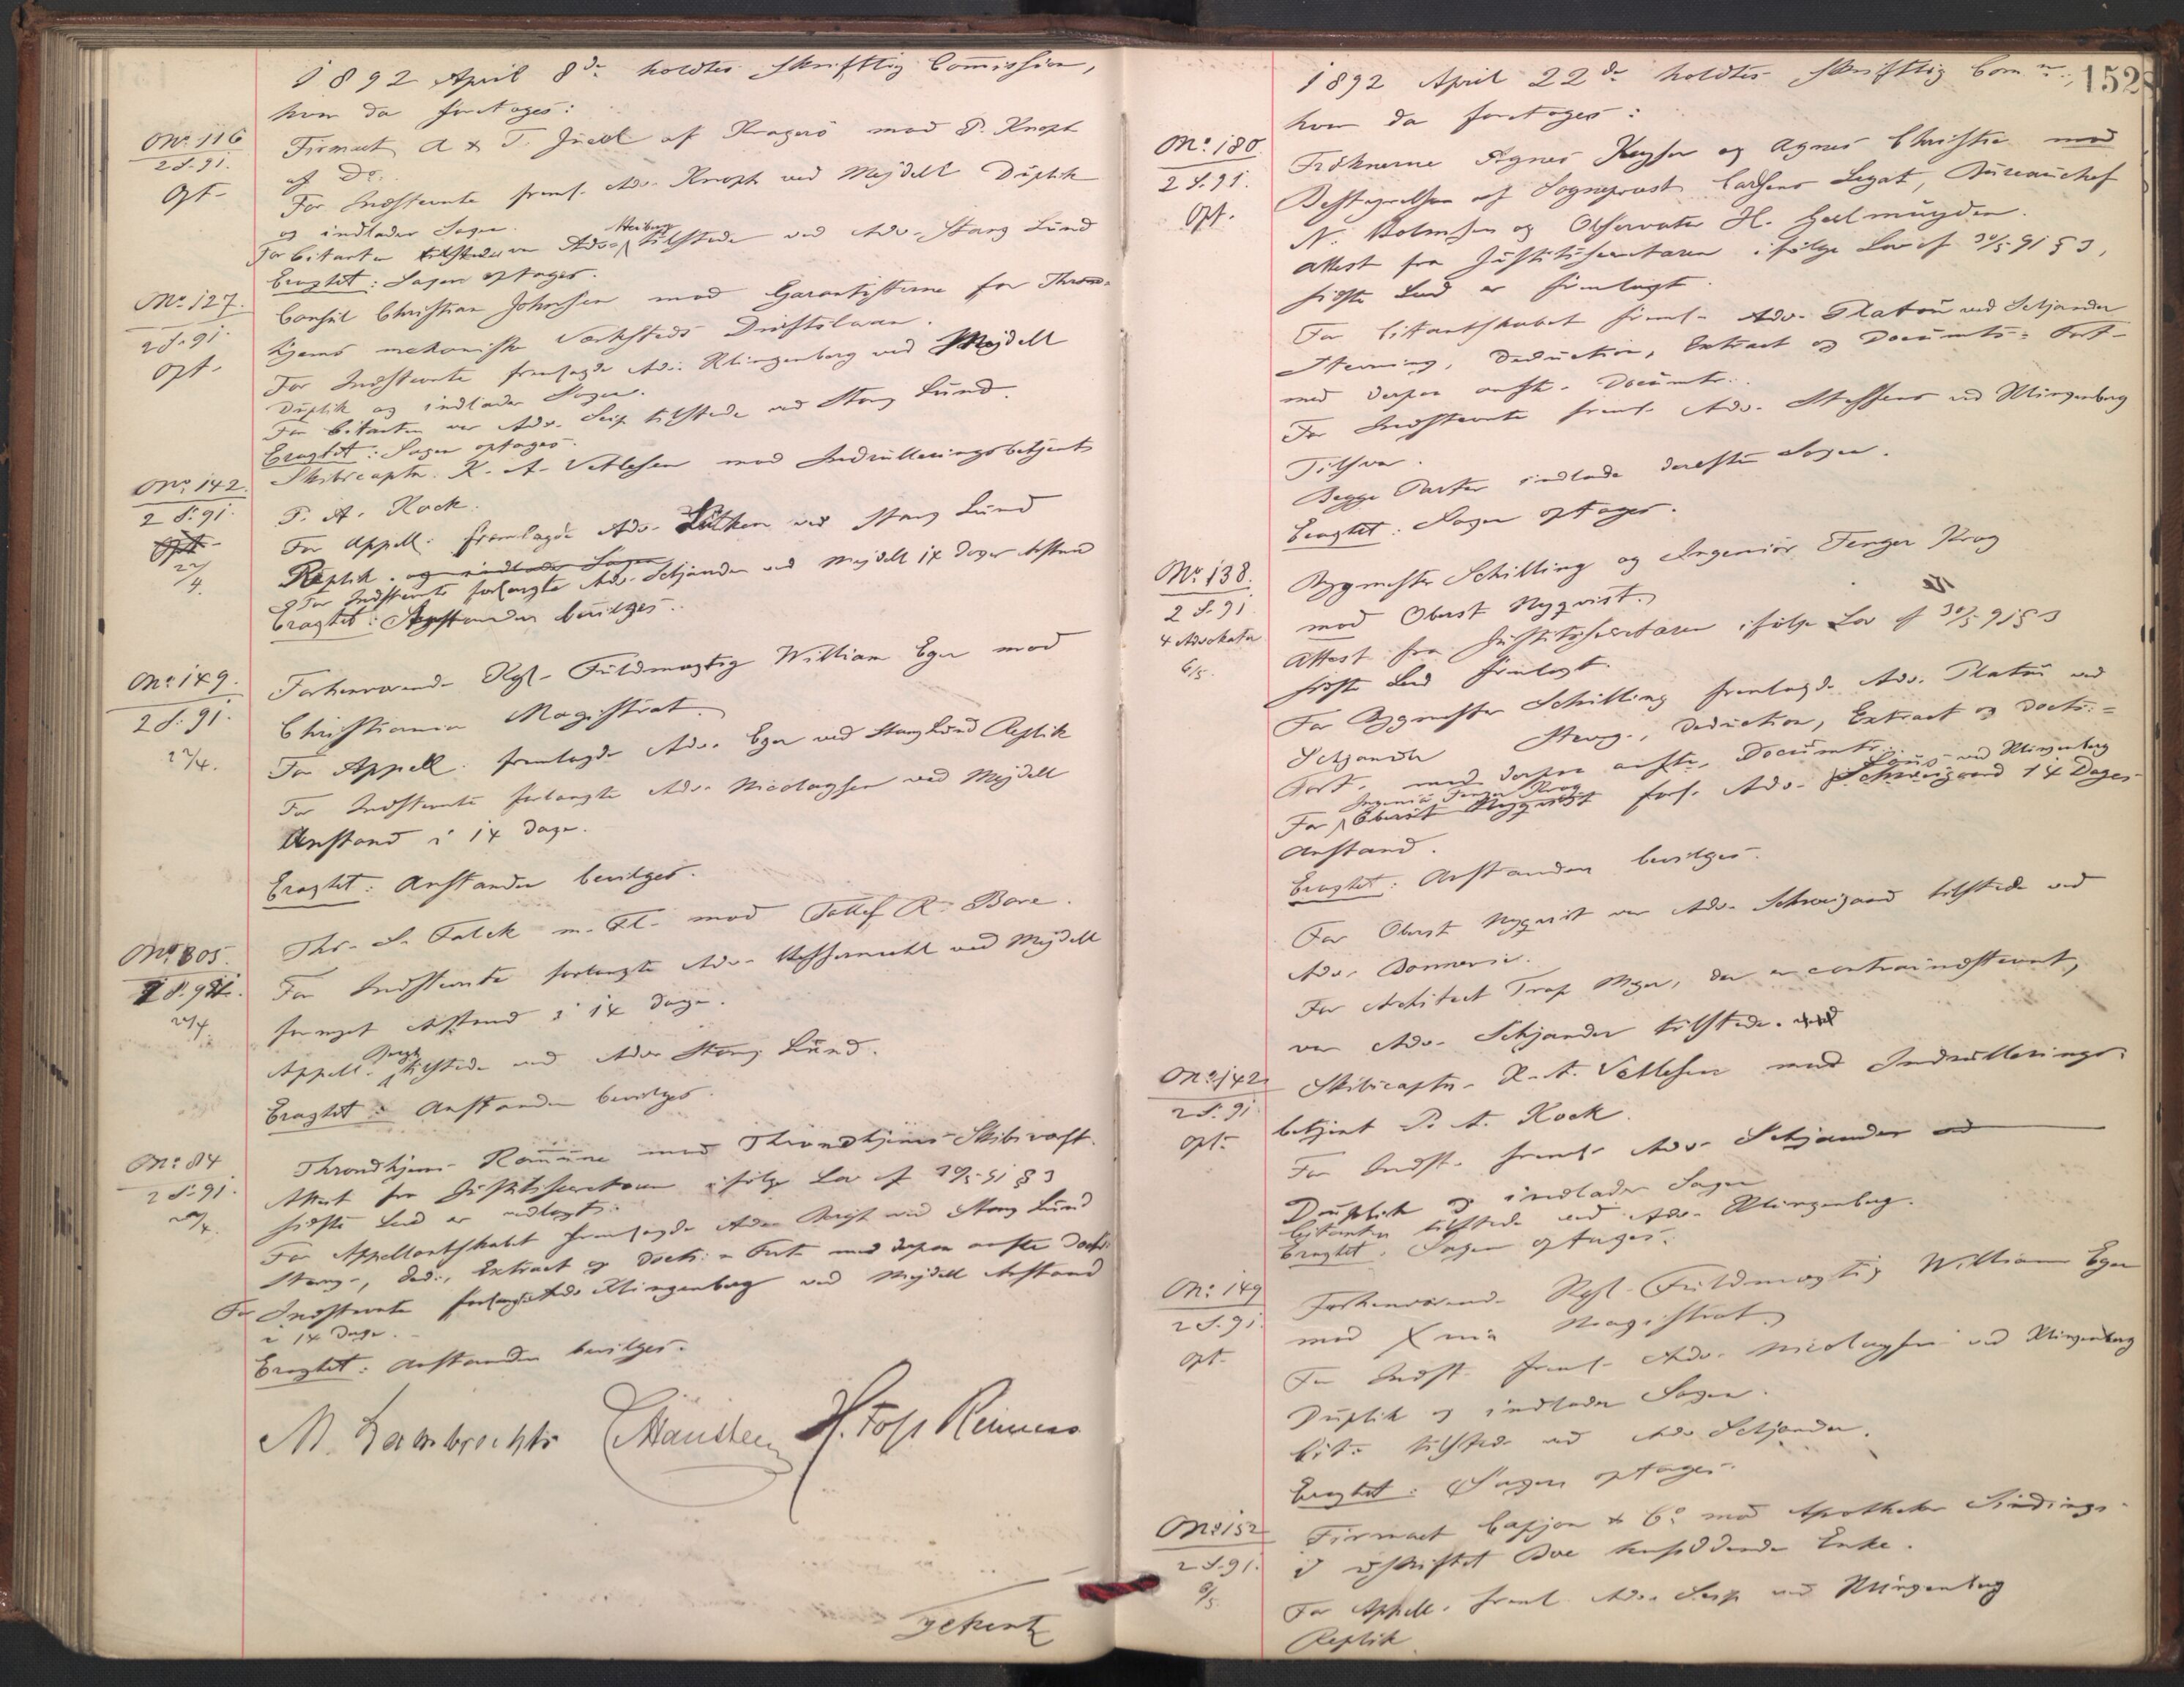 1892 April 8de holdtes Skriftlig Commission,
hvor da foretoges:
No. 116
2 S. 91.
Opt.
Firmaet A & T. Juell af Kragerö mod P. Knoph
af Do.
For Indstevnte freml. Adv. Knoph ved Mejdell Duplik
og indlader Sagen.
For Citanten tilstede var Adv. Heiberg tilstede ved Adv. Stang Lund
Eragtet: Sagen optages.
No. 127.
2 S. 91.
opt.
Consul Christian Johnsen mod Garantisterne for Thrond-
hjems mekaniske Værksteds Driftslaan.
For Indstevnte fremlagde Adv. Klingenberg ved Mejdell
Duplik og indlader Sagen.
For Citanten var Adv. Seip tilstede ved Stang Lund.
Eragtet: Sagen optages.
No. 142.
2 S. 91.
opt.
22/4.
Skibscaptn. K. A. Vetlesen mod Indrulleringsbetjent
P. A. Kock.
For Appell. fremlagde Adv. Lütken ved Stang Lund
Replik. og indlader Sagen
For Indstevnte forlangte Adv. Schjander ved Mejdell 14 Dages Anstand
Eragtet: Anstanden bevilges.
No. 149.
2 S. 91.
22/4.
Forhenværende Kgl. Fuldmægtig William Eger mod
Christiania Magistrat.
For Appell. fremlagde Adv. Eger ved Stang Lund Replik
For Indstevnte forlangte Adv. Nicolaysen ved Mejdell
Anstand i 14 Dage.
Eragtet: Anstanden bevilges.
No. 305.
22/4.
Thr. S. Falck m. Fl. mod Tollef R. Bore.
For Indstevnte forlangte Adv. ved Mejdell
fornyet Anstand i 14 Dage.
Appell. Bergh tilstede ved Adv. Stang Lund.
Eragtet: Anstanden bevilges.
No. 84
2 S. 91.
22/4.
Throndhjems Kommune mod Throndhjems Skibsværft.
Attest fra Justitssecretæren ifölge Lov af 30/5 91 § 3
sidste Led er vedlagt.
For Appellantskabet fremlagde Adv. Bergh ved Stang Lund
Stevng., Ded., Extract og Docts. = Fort. med derpaa anförte Docts.
For Indstevnte forlangte Adv. Klingenberg ved Mejdell Anstand
i 14 Dage.
Eragtet: Anstanden bevilges.
M. Lambrechts E. Hansteen H. Foss Reimers
152
1892 April 22de holdtes Skriftlig Comn.,
hvor da foretoges:
No. 180.
2 S. 91.
Opt.
Fröknerne Agnes Keyser og Agnes Christie mod
Bestyrelsen af Sogneprest Carlsens Legat, Bureauchef
N. Holmsen og Observator H. Geelmuyden.
Attest fra Justitssecretæren ifölge Lov af 30/5 91 § 3,
sidste Led er fremlagt.
For Citantskabet freml. Adv. Platou ved Schjander
Stevning, Deduction, Extract og Documts.= Fort-
med derpaa anfte. Documtr.
For Indstevnte freml. Adv. Steffens ved Klingenberg
Tilsvar.
Begge Parter indlode derefter Sagen.
Eragtet: Sagen optages.
No. 138.
2 S. 91.
4 Advokater
6/5.
Bygmester Schilling og Ingeniör Fenger Krog
mod Oberst Nyqvist.
Attest fra Justitssecretæren ifölge Lov af 30/5 91 § 3
sidste Led fremlagt.
For Bygmester Schilling fremlagde Adv. Platou ved
Schjander Stevng., Deduction, Extract og Docts.=
Fort. med derpaa anfte. Documtr.
For Ingeniör Fenger Krog Oberst Nyqvist forl. Adv. Lous ved Klingenberg Schweigaard 14 Dages
Anstand.
Eragtet: Anstanden bevilges.
For Oberst Nyqvist var Adv. Schweigaard tilstede ved
Adv. Bonnevie.
For Architect Trap Meyer, der er contraindstevnt,
var Adv. Schjander tilstede.
No. 142
2 S. 91
opt.
Skibscaptn. K. A. Vetlesen mod Indrullerings-
betjent P. A. Kock.
For Indst. freml. Adv. Schjander
Duplik og indlader Sagen
Citanten tilstede ved Adv. Klingenberg.
Eragtet: Sagen optages.
No. 149
2 S. 91.
opt.
Forhenværende Kgl. Fuldmægtig William Eger
mod Xnia Magistrat.
For Indst. freml. Adv. Nicolaysen ved Klingenberg
Duplik og indlader Sagen.
Cit. tilstede ved Adv. Schjander.
Eragtet: Sagen optages.
No. 152
2 S. 91.
6/5
Firmaet & Co. mod Apotheker Sindings
i uskiftet Bo hensiddende Enke.
For Appell. freml. Adv. Seip ved Klingenberg
Replik